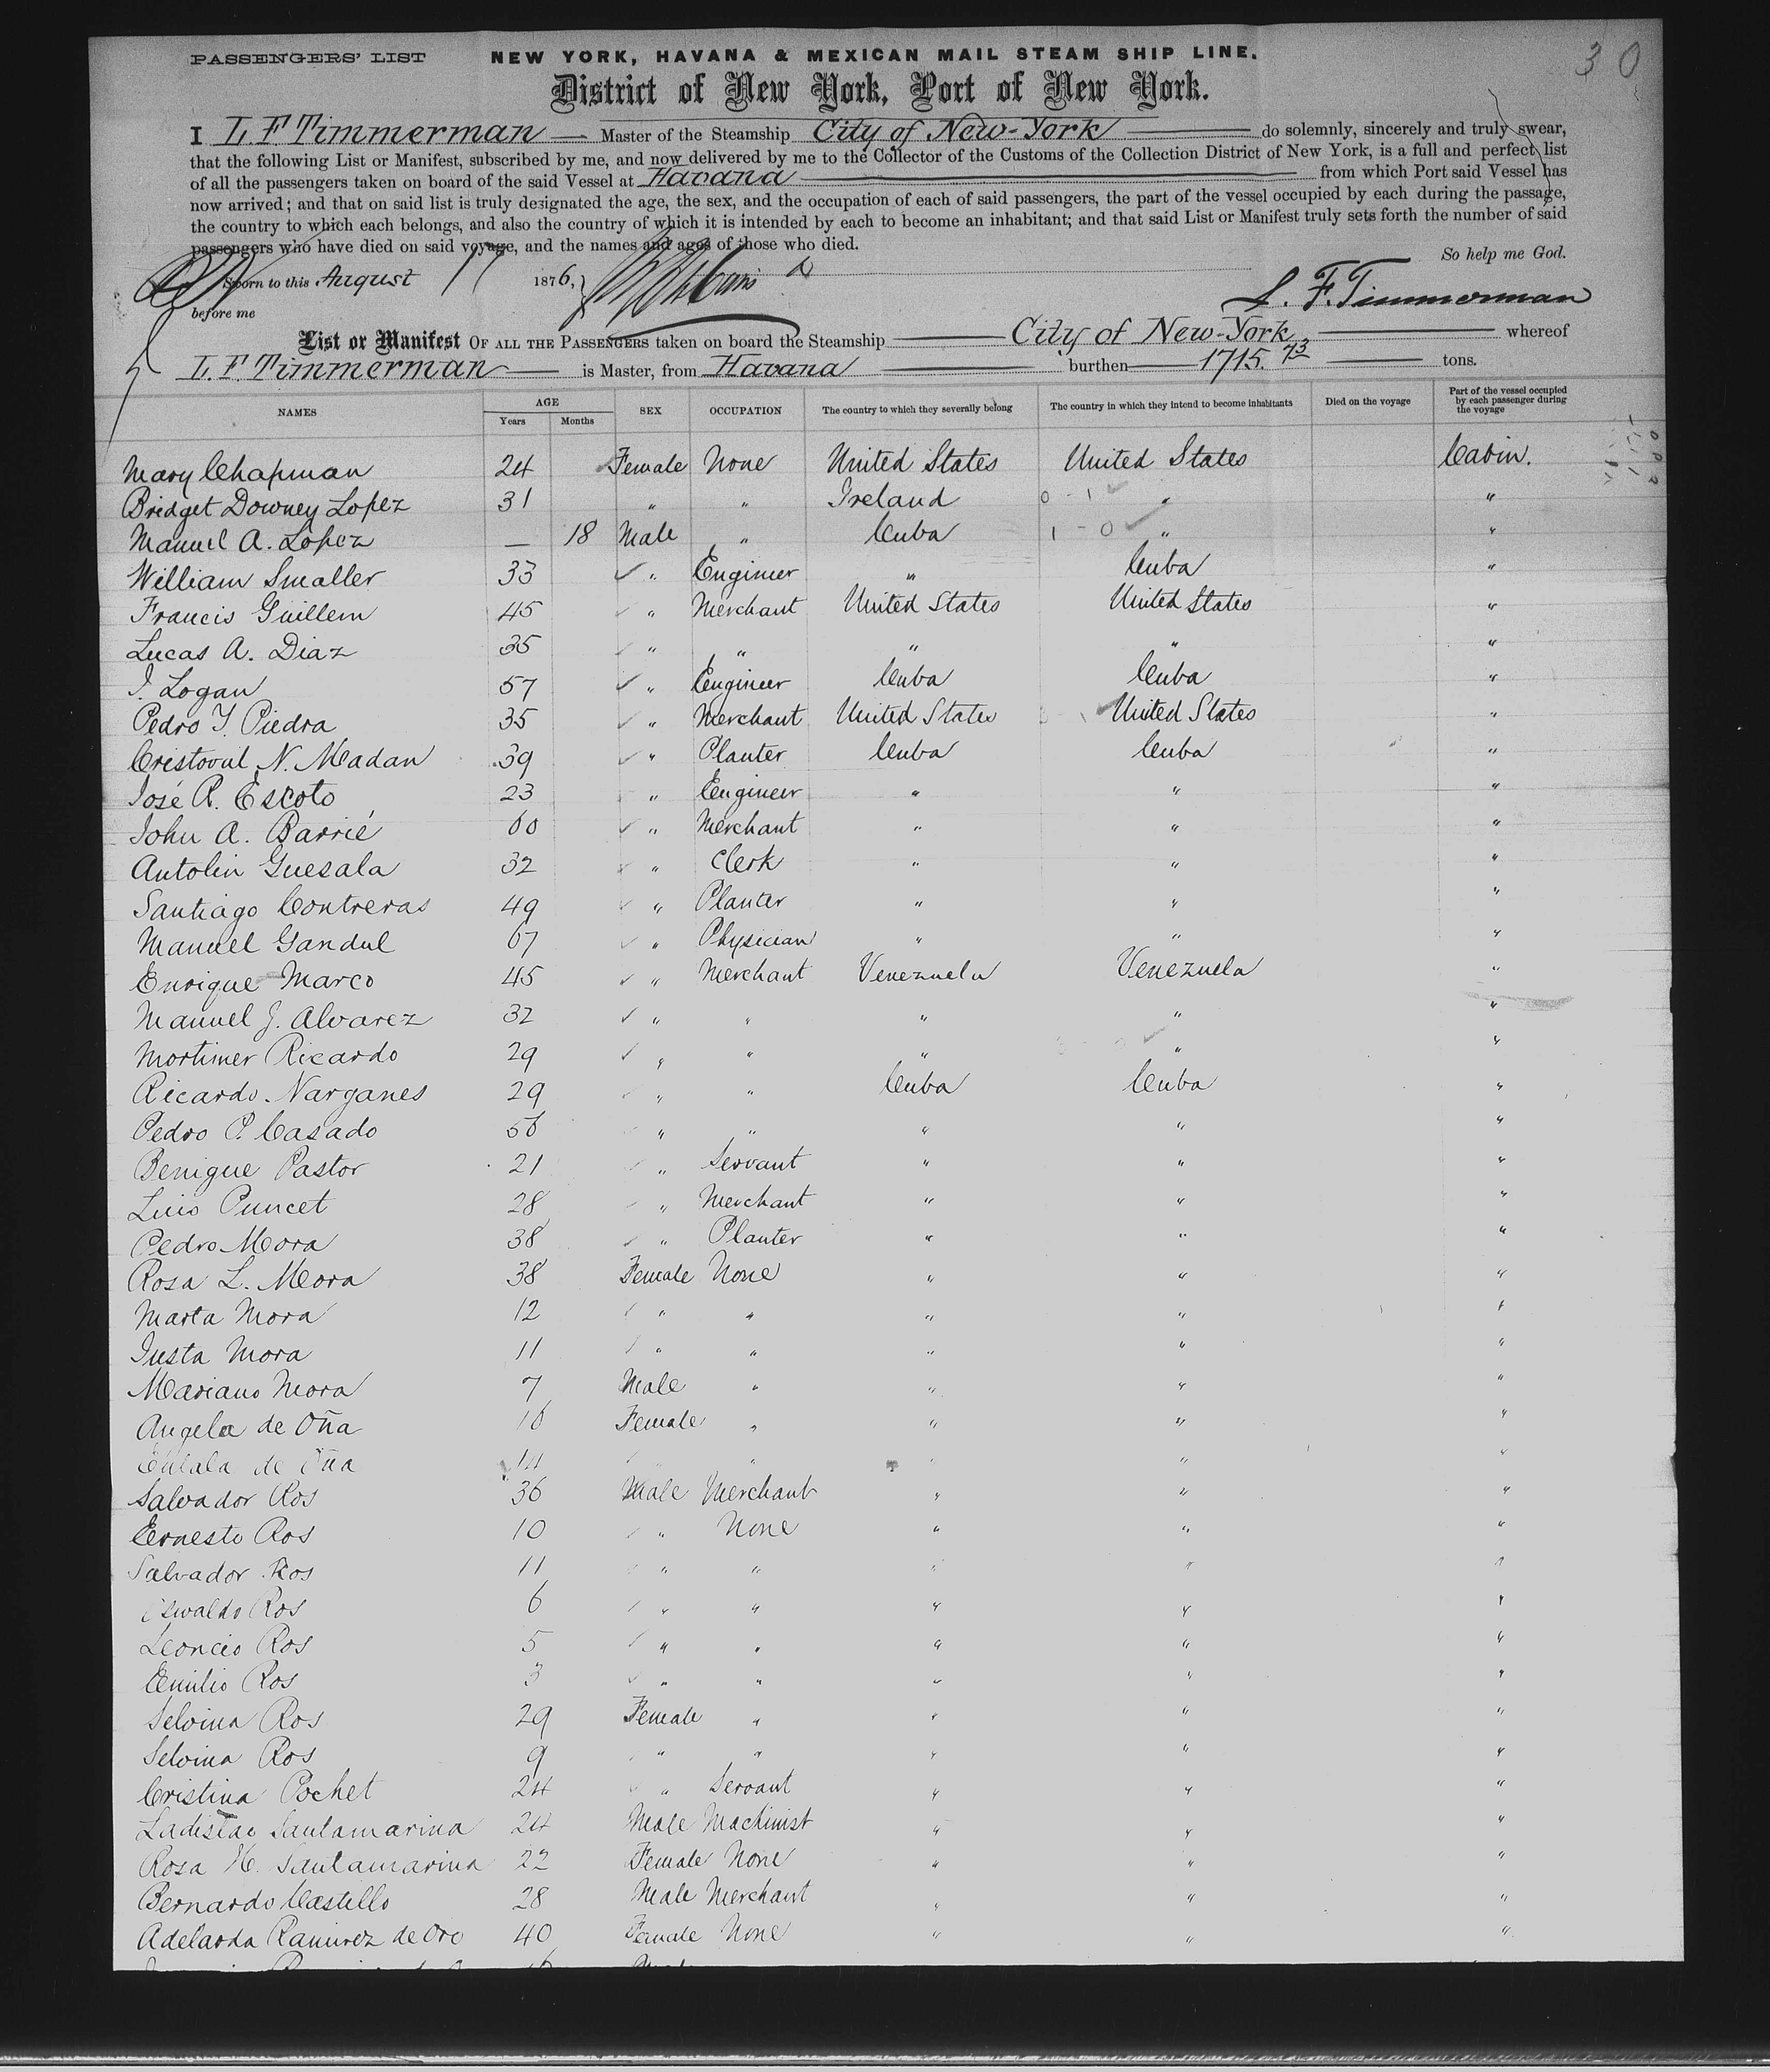 30
PASSENGERS' LIST NEW YORK, HAVANA & MEXICAN MAIL STEAM SHIP LINE.
District of New York, Port of New York.
I L. F. Timmerman Master of the Steamship City of New-York do solemnly, sincerely and truly swear,
that the following List or Manifest, subscribed by me, and now delivered by me to the Collector of the Customs of the Collection District of New York, is a full and perfect list
of all the passengers taken on board of the said Vessel at Havana from which Port said Vessel has
now arrived; and that on said list is truly designated the age, the sex, and the occupation of each of said passengers, the part of the vessel occupied by each during the passage,
the country to which each belongs, and also the country of which it is intended by each to become an inhabitant; and that said List or Manifest truly sets forth the number of said
passengers who have died on said voyage, and the names and ages of those who died.
So help me God.
Sworn to this August 17 1876,
before me
L. F. Timmerman
List or Manifest OF ALL THE PASSENGERS taken on board the Steamship City of New-York whereof
L. F. Timmerman is Master, from Havana burthen 1715.73 tons.
NAMES AGE Years Months SEX OCCUPATION The country to which they severally belong The country in which they intend to become inhabitants Died on the voyage Part of the vessel occupied by each passenger during the voyage
Mary Chapman 24 Female None United States United States Cabin.
Bridget Downey Lopez 31 " " Ireland 0-1 " "
Manuel A. Lopez — 18 Male " Cuba 1-0 " "
William Smaller 33 " Engineer " Cuba "
Francis Guillem 45 " Merchant United States United States "
Lucas A. Diaz 35 " " " " "
J. Logan 57 " Engineer Cuba Cuba "
Pedro Y. Piedra 35 " Merchant United States United States "
Cristoval N. Madan 39 " Planter Cuba Cuba "
José R. Escoto 23 " Engineer " " "
John A. Barrié 60 " Merchant " " "
Antolin Guesala 32 " Clerk " " "
Santiago Contreras 49 " Planter " " "
Manuel Gandul 67 " Physician " " "
Enrique Marco 45 " Merchant Venezuela Venezuela "
Manuel J. Alvarez 32 " " " " "
Mortimer Ricardo 29 " " " " "
Ricardo Narganes 29 " " Cuba Cuba "
Pedro P. Casado 56 " " " " "
Benigue Pastor 21 " Servant " " "
Luis Puncet 28 " Merchant " " "
Pedro Mora 38 " Planter " " "
Rosa L. Mora 38 Female None " " "
Marta Mora 12 " " " " "
Justa Mora 11 " " " " "
Mariano Mora 7 Male " " " "
Angela de Oña 16 Female " " " "
Eulala de Oña 14 " " " "
Salvador Ros 36 Male Merchant " " "
Ernesto Ros 10 " None " " "
Salvador Ros 11 " " " " "
Oswaldo Ros 6 " " " " "
Leoncio Ros 5 " " " " "
Emilio Ros 3 " " " " "
Selvina Ros 29 Female " " " "
Selvina Ros 9 " " " " "
Cristina Pochet 24 " Servant " " "
Ladislao Santamarina 24 Male Machinist " " "
Rosa H. Santamarina 22 Female None " " "
Bernardo Castillo 28 Male Merchant " " "
Adelarda Ramirez de Oro 40 Female None " " "